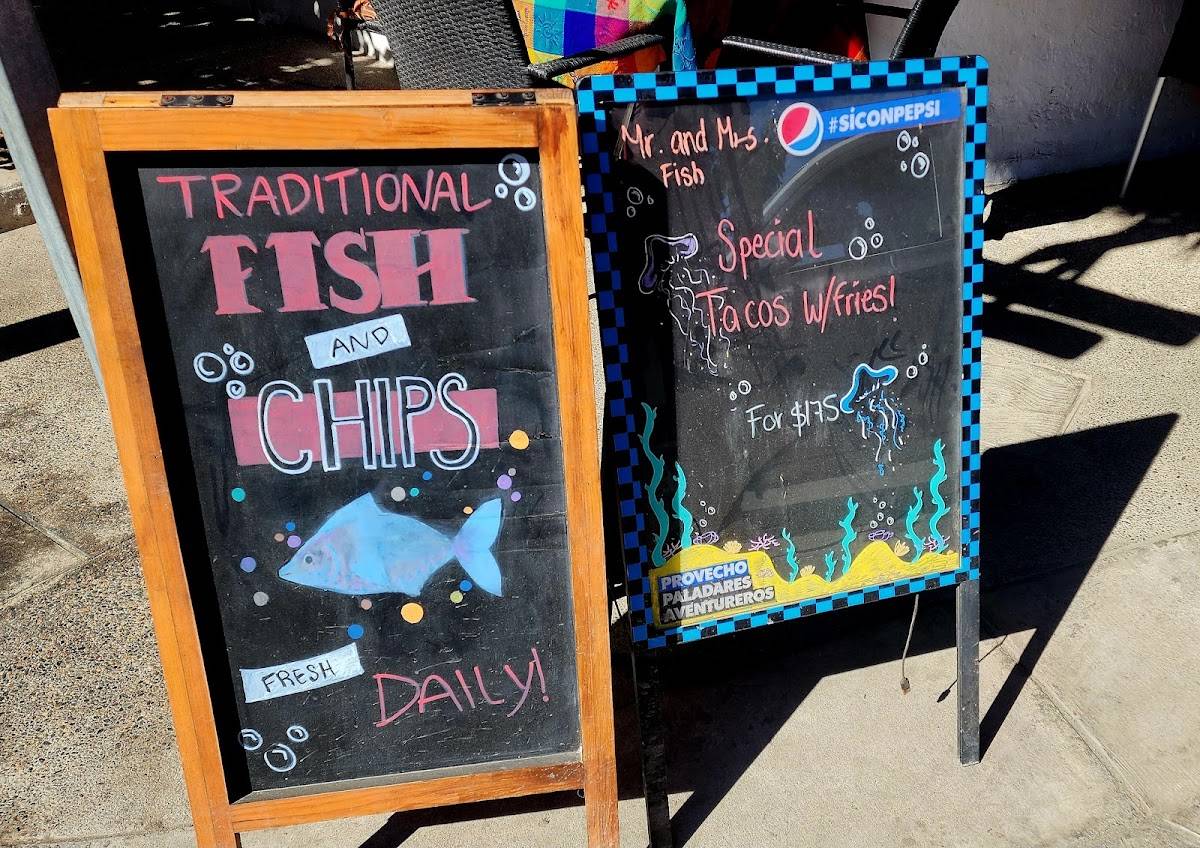 TRADITIONAL
FISH
AND
CHIPS
FRESH
DAILY!
#SÍCONPEPSI
Mr. and Mrs.
Fish
Special
Tacos w/fries!
For $175
PROVECHO
PALADARES
AVENTUREROS